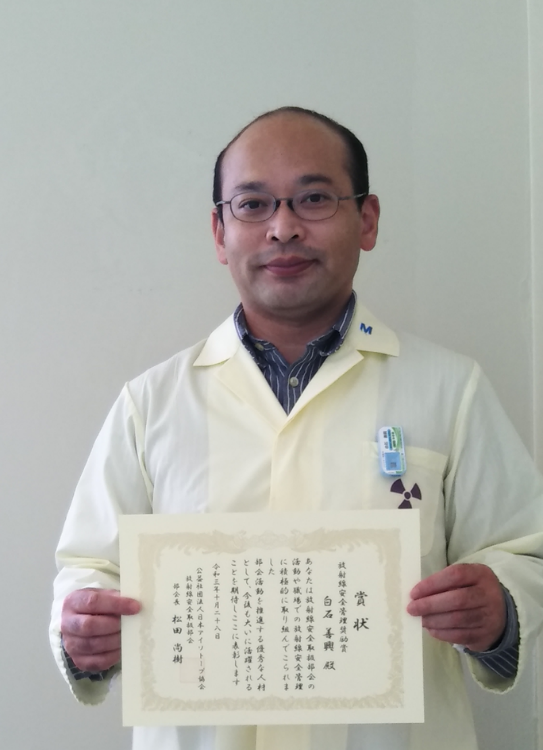 M
賞状
放射線安全管理奨励賞
白石善興 殿
あなたは放射線安全取扱部会の
活動や職場での放射線安全管理
に積極的に取り組んでこられま
した
部会活動を推進する優秀な人材
として、今後も大いに活躍される
ことを期待しここに表彰します
令和三年十月二十八日
公益社団法人日本アイソトープ協会
放射線安全取扱部会
部会長 松田尚樹